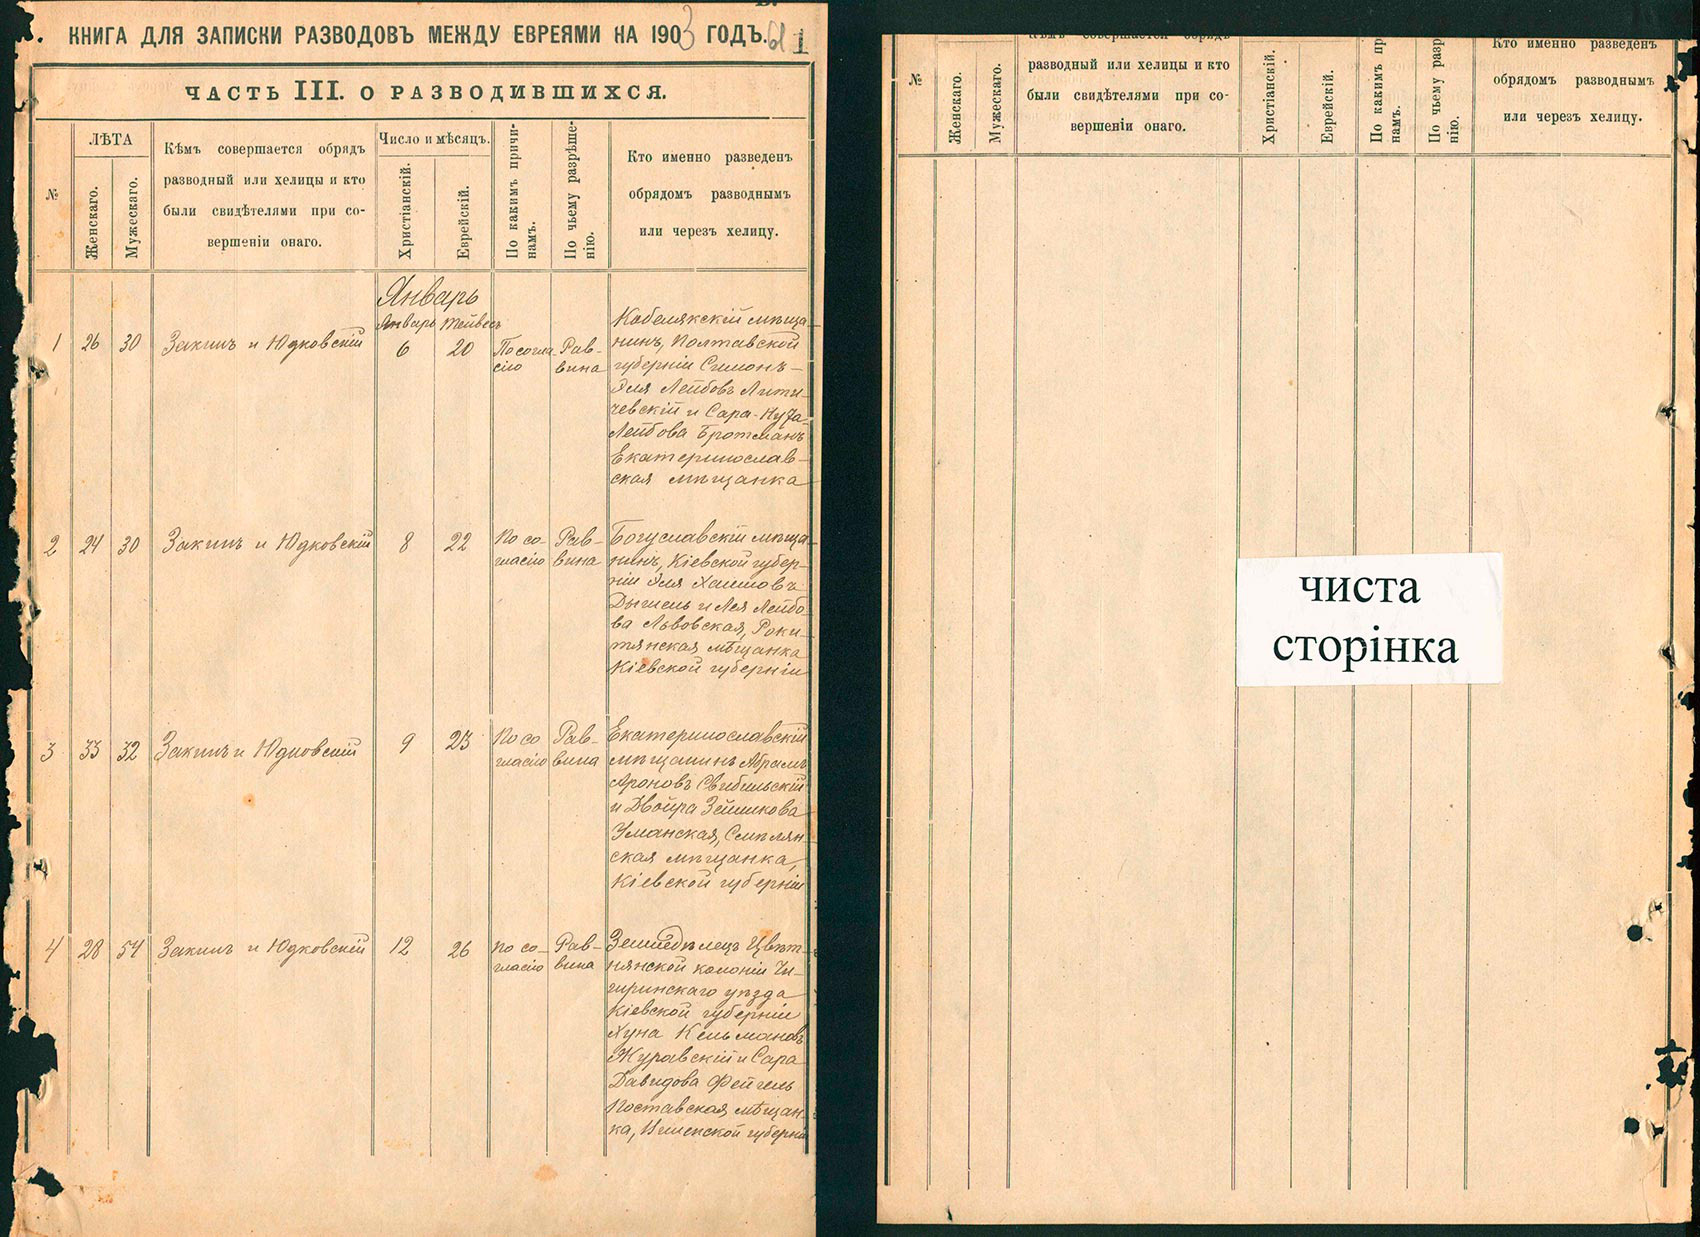 КНИГА ДЛЯ ЗАПИСКИ РАЗВОДОВЪ МЕЖДУ ЕВРЕЯМИ НА 1903 ГОДЪ.
ЧАСТЬ III. О РАЗВОДИВШИХСЯ.
№
ЛѢТА
Женскаго.
Мужескаго.
Кѣмъ совершается обрядъ
разводный или хелицы и кто
были свидѣтелями при со-
вершеніи онаго.
Число и мѣсяцъ.
Христіанскій.
Еврейскій.
По какимъ причи-
намъ.
По чьему разрѣше-
нію.
Кто именно разведенъ
обрядомъ разводнымъ
или черезъ хелицу.
Январь
Январь Тейвесъ
1 26 30 Закинъ и Юдковскій 6 20
По согла-
сію
Рав-
вина
Кобелякскій мѣща-
нинъ, Полтавской
губерніи Симонъ-
Эля Лейбовъ Литы-
чевскій и Сара-
Лейбова Бротманъ
Екатеринослав-
ская мѣщанка
2 24 30 Закинъ и Юдковскій 8 22
По со-
гласію
Рав-
вина
Богуславскій мѣща-
нинъ, Кіевской губер-
ніи Эля Хаимовъ
Дымель и Лея Лейбо-
ва Львовская, Роки-
тянская мѣщанка
Кіевской губерніи
3 33 32 Закинъ и Юдковскій 9 23
По со
гласію
Рав-
вина
Екатеринославскій
мѣщанинъ Абрамъ
Ароновъ Свибильскій
и Двойра Зейликова
Уманская, Смѣлян
ская мѣщанка,
Кіевской губерніи
4 28 54 Закинъ и Юдковскій 12 26
по со-
гласію
Рав-
вина
Земледѣлецъ Цвѣт-
нянской колоніи Чи-
гиринскаго уѣзда
Кіевской губерніи
Хуна Кельмановъ
Журавскій и Сара
Давидова Фейгель
Поставская мѣщан-
ка, губерніи
№
Женскаго.
Мужескаго.
Кѣмъ совершается обрядъ
разводный или хелицы и кто
были свидѣтелями при со-
вершеніи онаго.
Христіанскій.
Еврейскій.
По какимъ пр
намъ.
По чьему разр
нію.
Кто именно разведенъ
обрядомъ разводнымъ
или черезъ хелицу.
чиста
сторінка